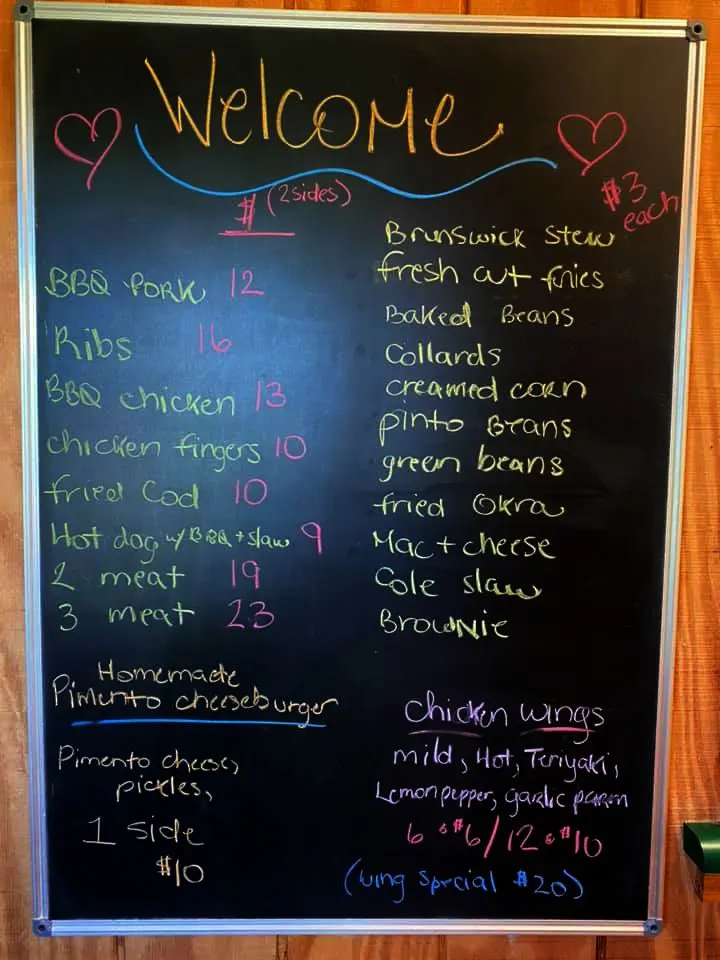 Welcome
$ (2 sides)
BBQ PORK 12
Ribs 16
BBQ chicken 13
chicken fingers 10
fried Cod 10
Hot dog w/ BBQ + slaw 9
2 meat 19
3 meat 23
$3 each
Brunswick stew
fresh cut fries
Baked Beans
Collards
creamed corn
pinto Beans
green beans
fried Okra
Mac + cheese
Cole slaw
Brownie
Homemade
Pimento cheeseburger
Pimento cheese,
pickles,
1 side
$10
chicken wings
mild, Hot, Teriyaki,
Lemon pepper, garlic parm
6 $6 / 12 $10
(wing special $20)